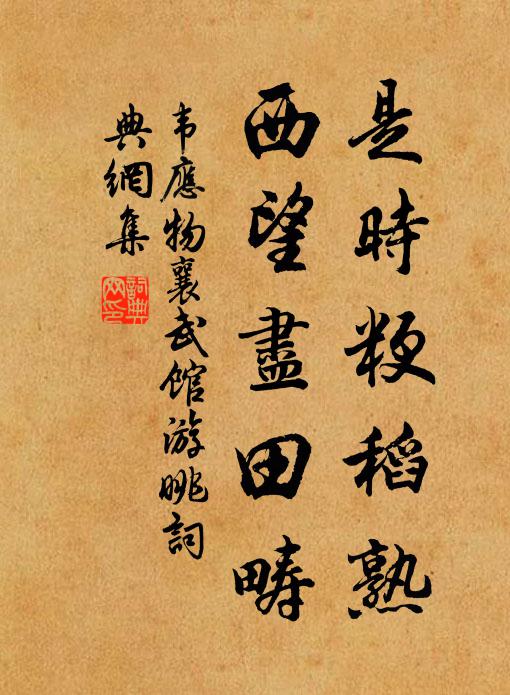 是時粳稻熟
西望盡田疇
韦應物襄武館游眺詞
典網集
詞典網印